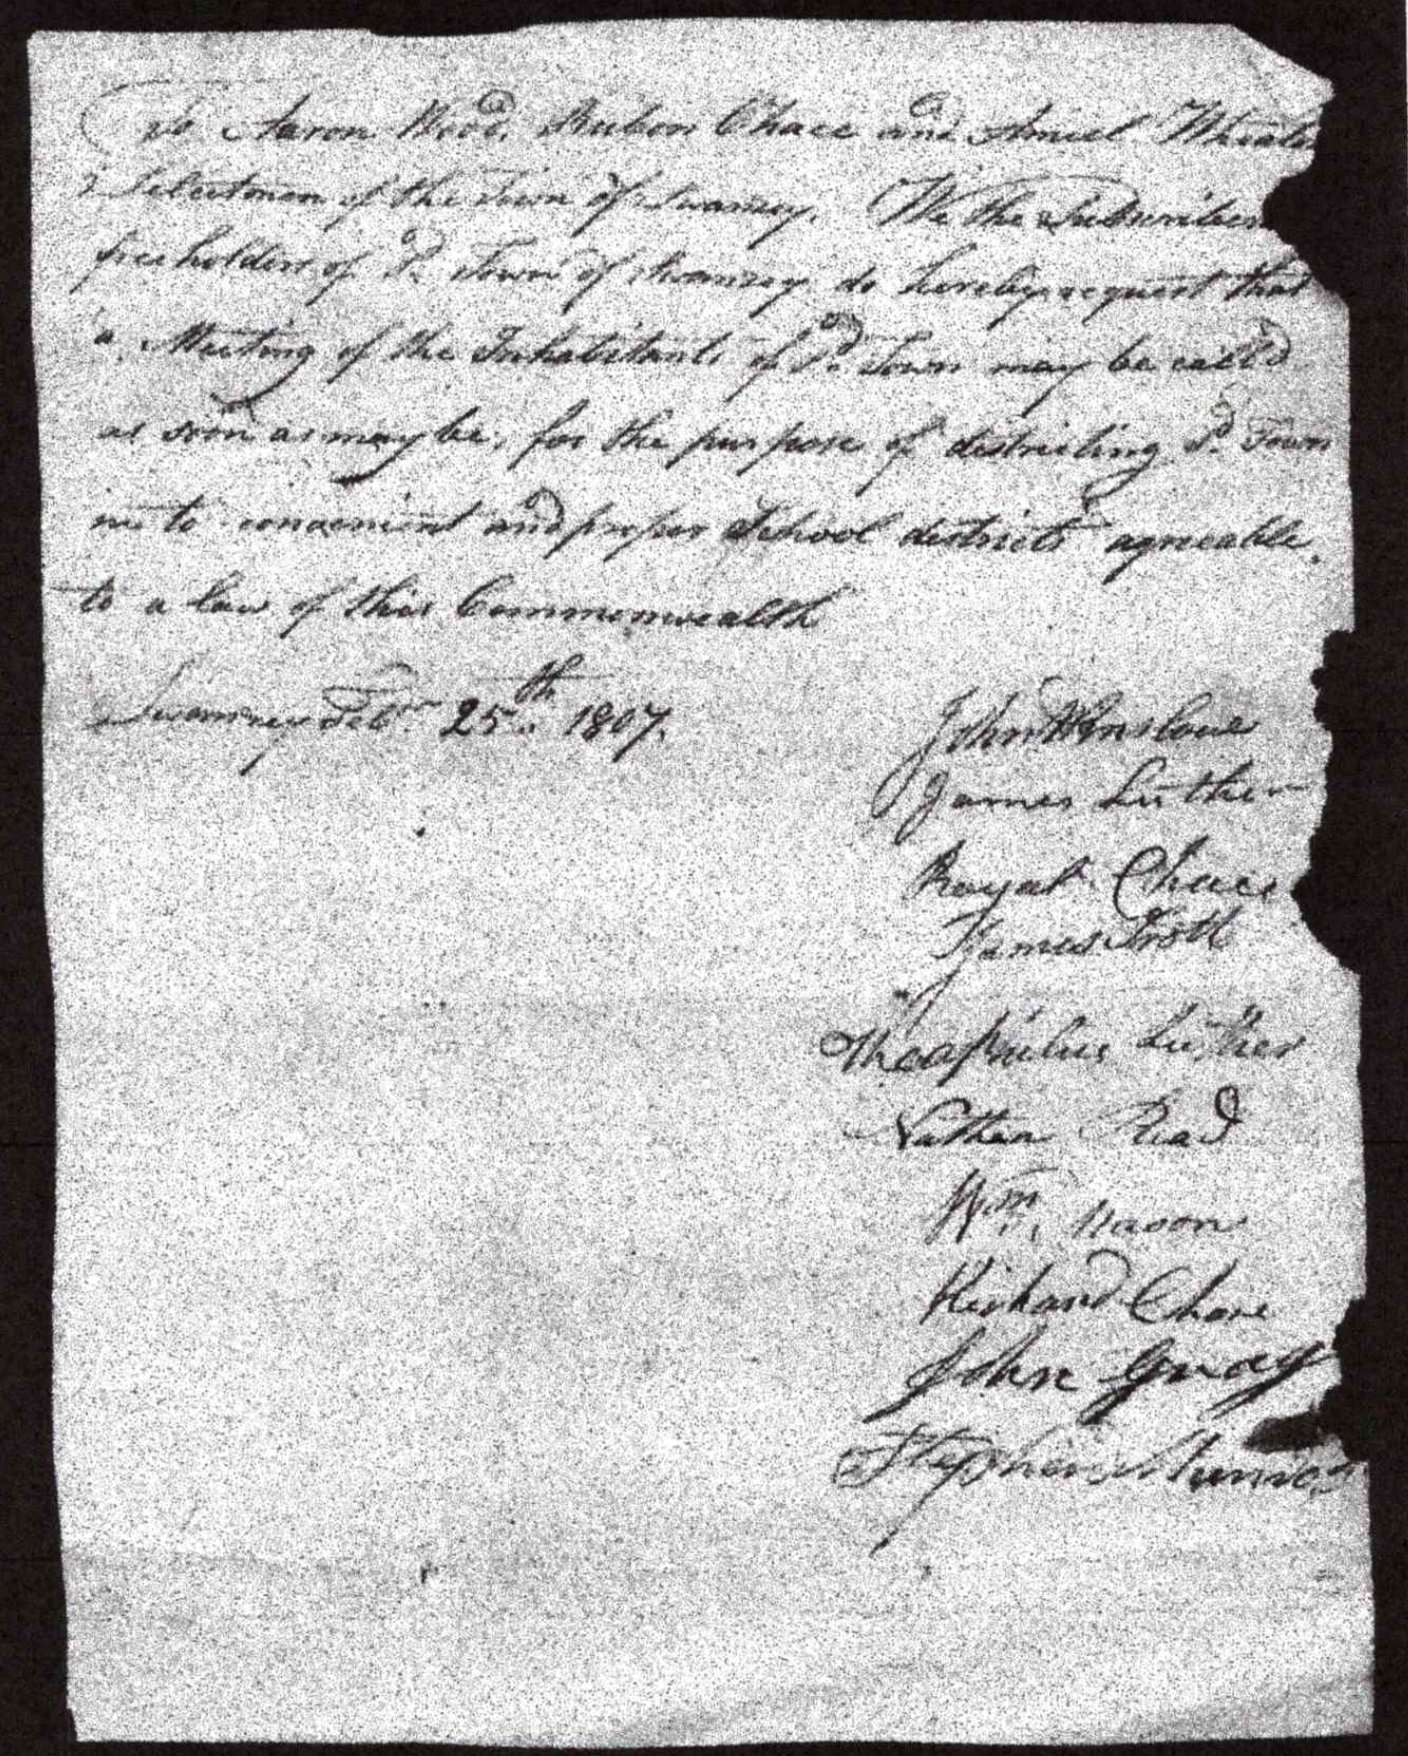 To Aaron Wood, Rubon Chace and
Selectmen of the Town of Swanzey. We the Subscribers
freeholders of Sd. Town of Swanzey do hereby request that
a Meeting of the Inhabitants of Sd. Town may be call'd
as soon as may be, for the purpose of districting Sd. Town
in to convenient and proper School districts agreeable
to a law of this Commonwealth
Swanzey Febr. 25th. 1807.
John Winslow
James Luther
Royal Chace
James Trott
Theaphilus Luther
Nathan Read
Wm. Mason
Richard Chase
John Gray
Stephen